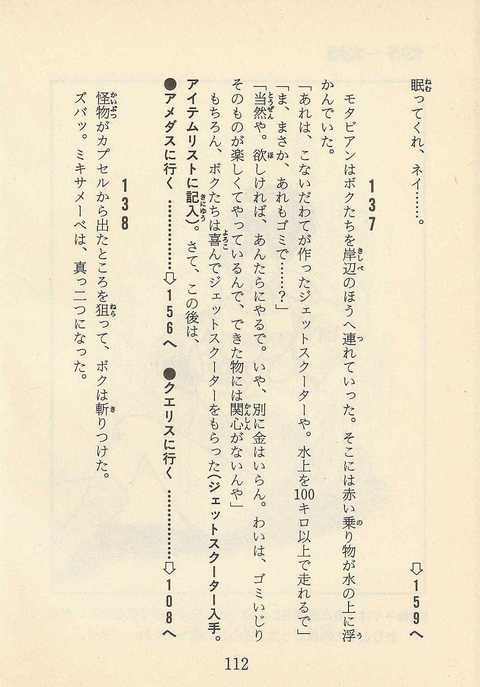 眠ってくれ、ネイ……。
⇨159へ
137
モタビアンはボクたちを岸辺のほうへ連れていった。そこには赤い乗り物が水の上に浮
かんでいた。
「あれは、こないだわてが作ったジェットスクーターや。水上を100キロ以上で走れるで」
「ま、まさか、あれもゴミで……？」
「当然や。欲しければ、あんたらにやるで。いや、別に金はいらん。わいは、ゴミいじり
そのものが楽しくてやっているんで、できた物には関心がないんや」
もちろん、ボクたちは喜んでジェットスクーターをもらった(ジェットスクーター入手。
アイテムリストに記入)。さて、この後は、
●アメダスに行く ………………⇨156へ ●クエリスに行く ………………⇨108へ
138
怪物がカプセルから出たところを狙って、ボクは斬りつけた。
ズバッ。ミキサメーベは、真っ二つになった。
112